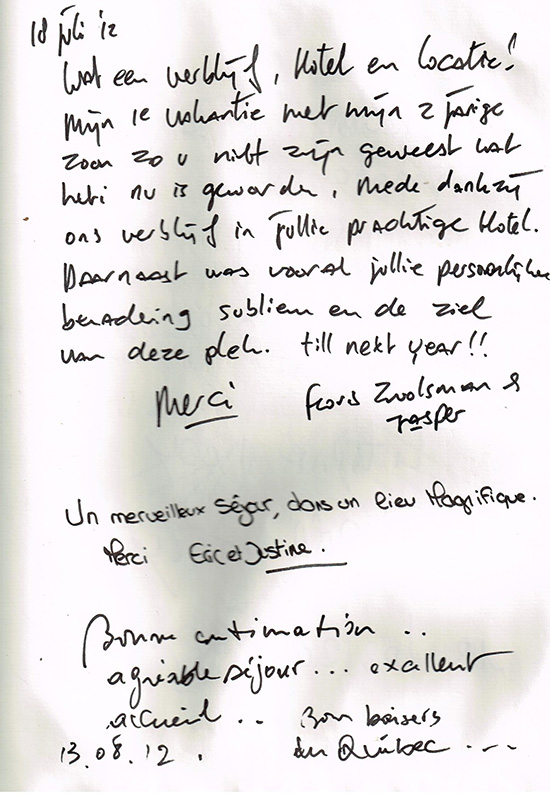 18 juli '12
Wat een verblijf, Hotel en locatie!
Mijn 1e vakantie met mijn 2 jarige
zoon zou niet zijn geweest wat
het nu is geworden, mede dankzij
ons verblijf in jullie prachtige Hotel.
Daarnaast was vooral jullie persoonlijke
benadering subliem en de ziel
van deze plek. till next year!!
Merci Floris Zwolsman &
Jasper
Un merveilleux séjour, dans un lieu Magnifique.
Merci Eric et Justine.
Bonne continuation ..
agréable séjour... excellent
accueil .. Bon baisers
du Québec ...
13.08.12.